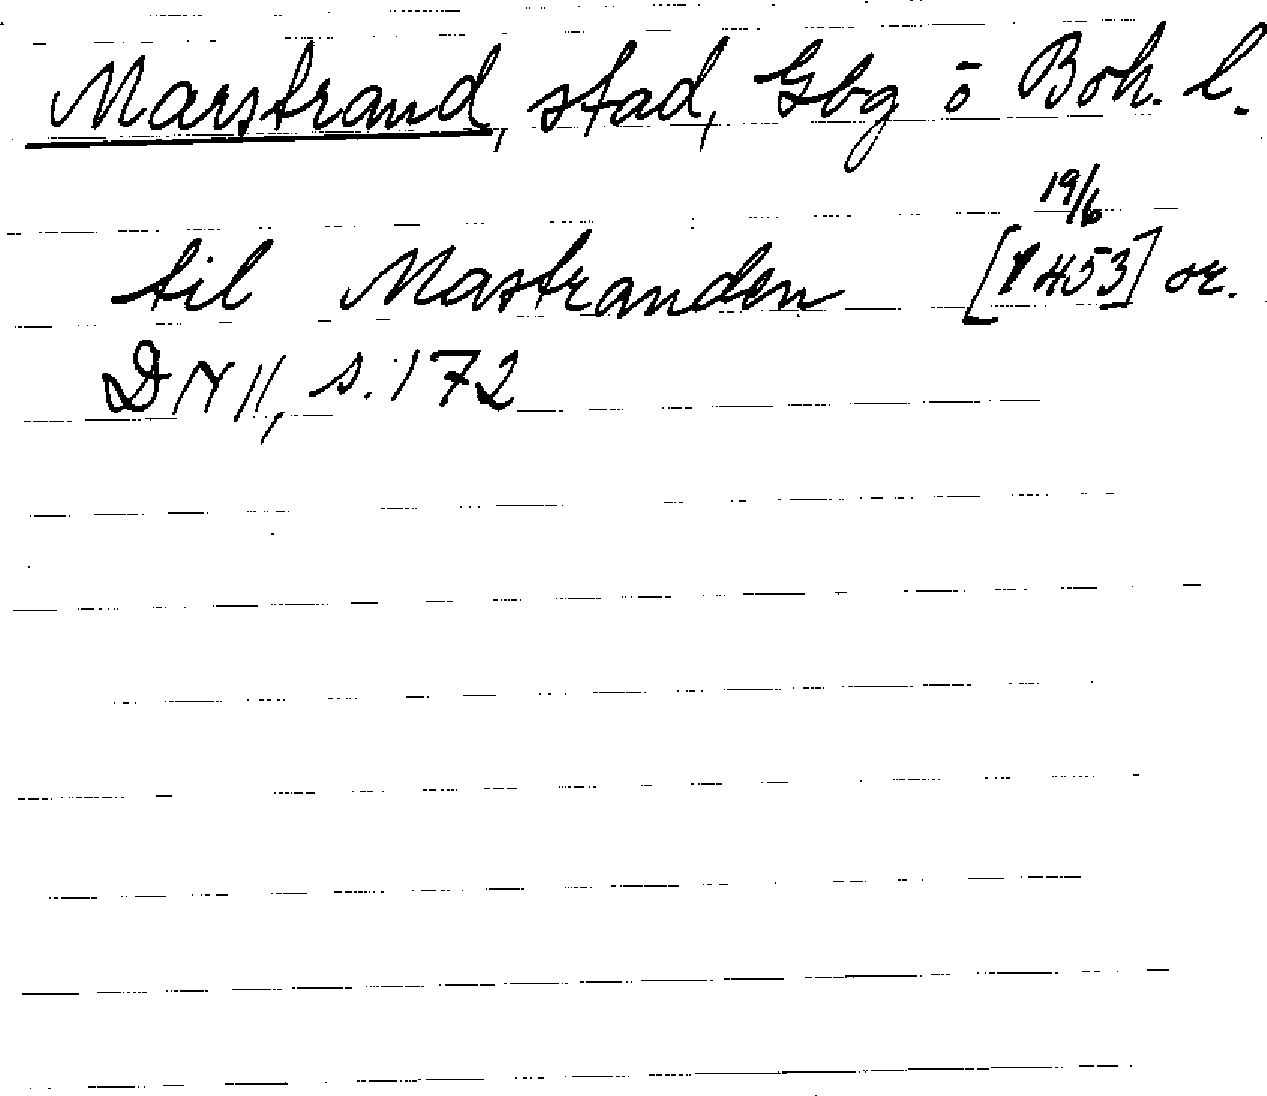 Marstrand, stad, Gbg ō Boh. l.
19/6
til Mastranden [1453] or.
DN II, s. 172